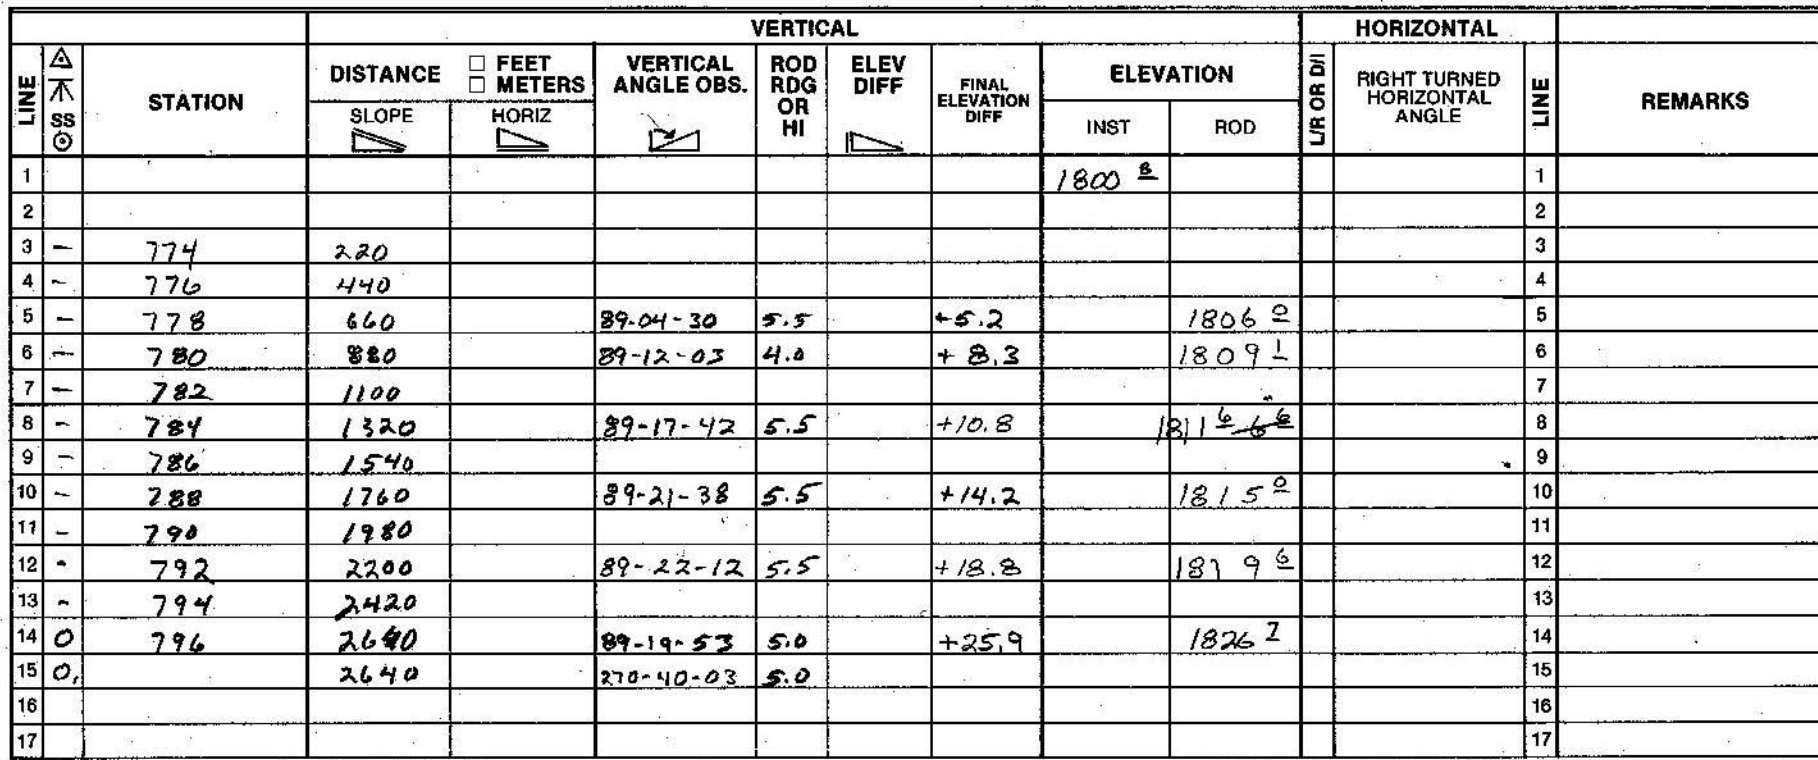 VERTICAL HORIZONTAL
LINE SS STATION DISTANCE □ FEET □ METERS VERTICAL ANGLE OBS. ROD RDG OR HI ELEV DIFF FINAL ELEVATION DIFF ELEVATION L/R OR D/I RIGHT TURNED HORIZONTAL ANGLE LINE REMARKS
SLOPE HORIZ INST ROD
1 1800 8 1
2 2
3 - 774 220 3
4 - 776 440 4
5 - 778 660 89-04-30 5.5 +5.2 1806 0 5
6 - 780 880 89-12-03 4.0 +8.3 1809 1 6
7 - 782 1100 7
8 - 784 1320 89-17-42 5.5 +10.8 1811 6 8
9 - 786 1540 9
10 - 788 1760 89-21-38 5.5 +14.2 1815 0 10
11 - 790 1980 11
12 - 792 2200 89-22-12 5.5 +18.8 1819 6 12
13 - 794 2420 13
14 O 796 2640 89-19-53 5.0 +25.9 1826 7 14
15 O, 2640 270-40-03 5.0 15
16 16
17 17